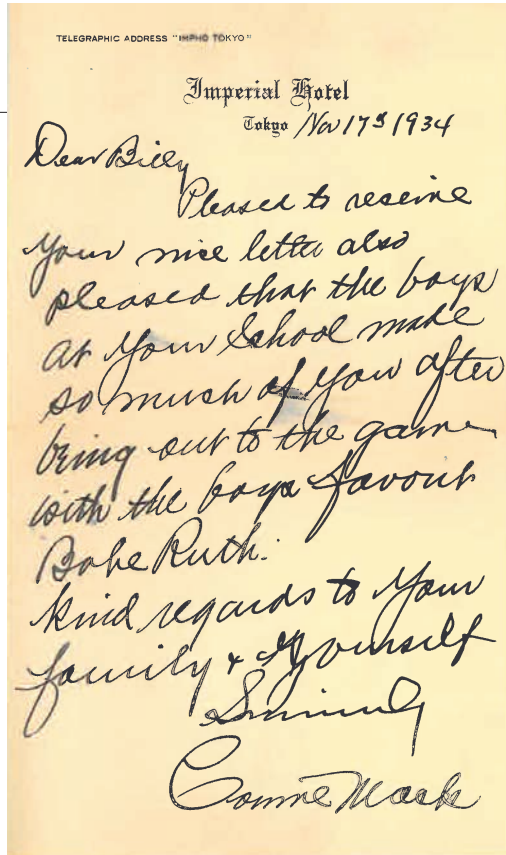 TELEGRAPHIC ADDRESS "IMPHO TOKYO"
Imperial Hotel
Tokyo Nov 17th 1934
Dear Billy
Pleased to receive
your nice letter also
pleased that the boys
at your School made
so much of you after
being out to the game
with the boys favourit
Babe Ruth.
Kind regards to your
family & yourself
Sincerely
Connie Mack